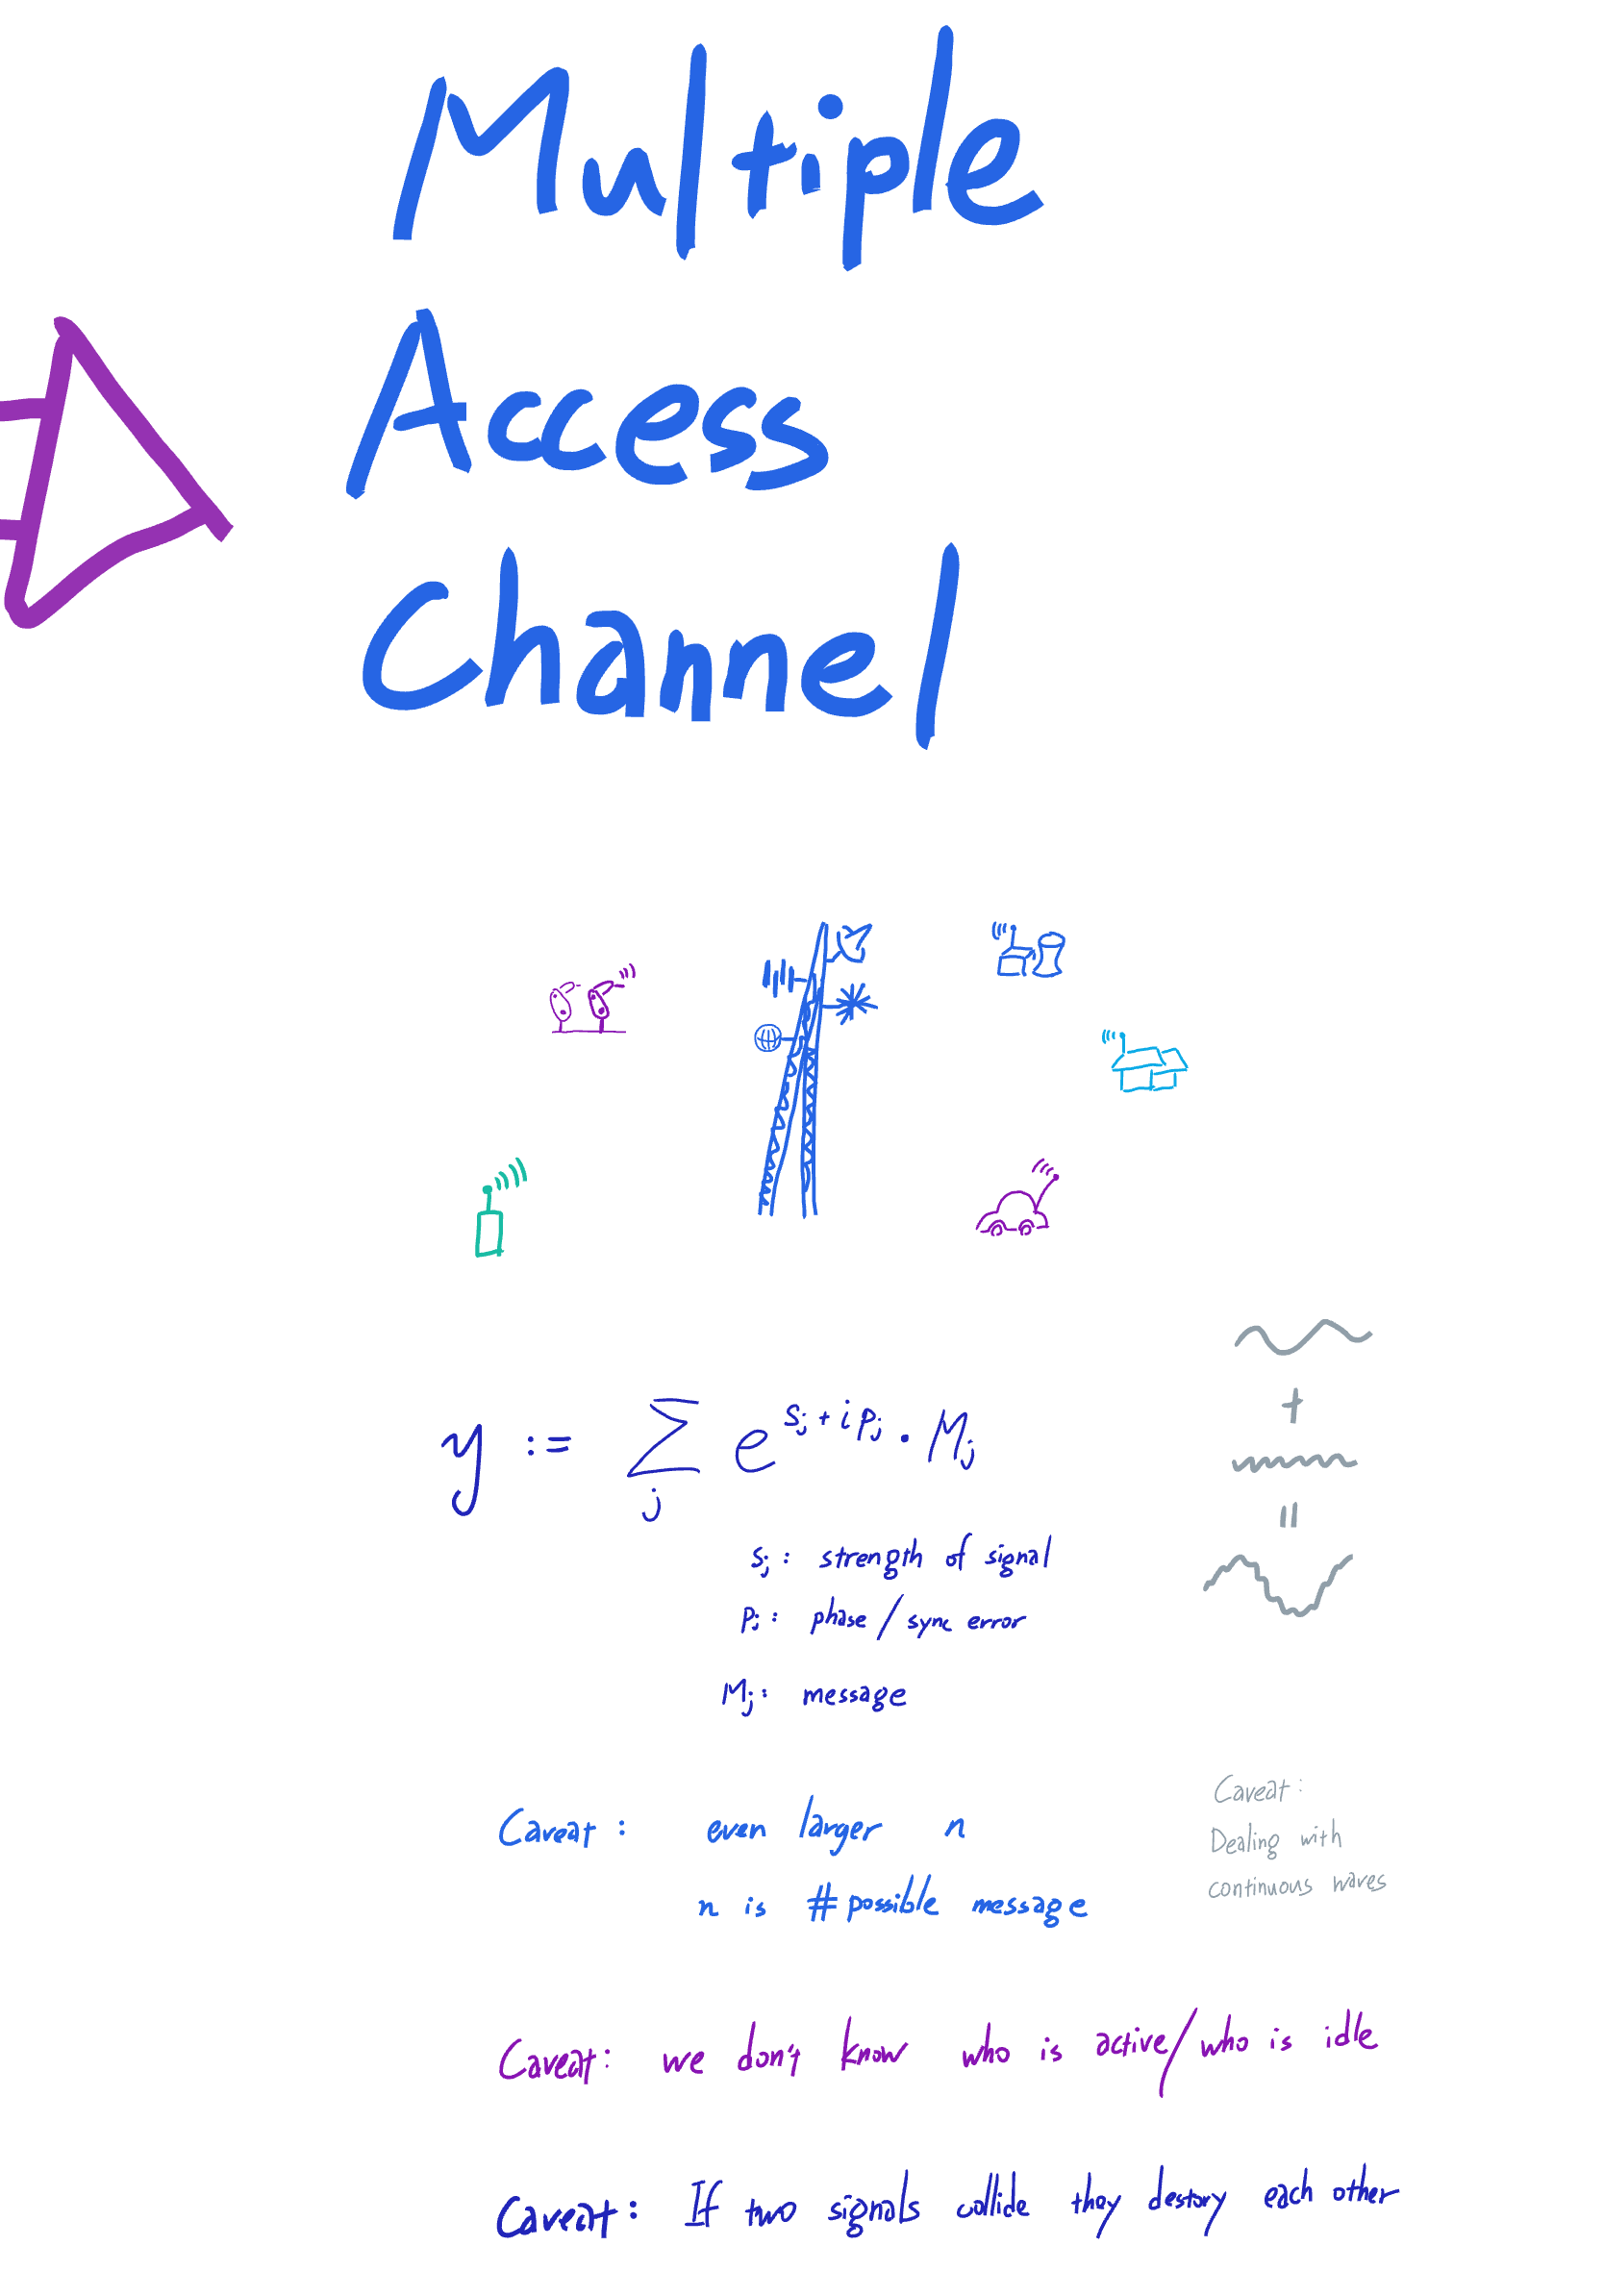 Multiple
Access
Channel
y := ∑_j e^{s_j + i p_j} · M_j
+
=
s_j : strength of signal
p_j : phase / sync error
M_j : message
Caveat : even larger n
n is #possible message
Caveat :
Dealing with
continuous waves
Caveat : we don't know who is active/who is idle
Caveat : If two signals collide they destory each other